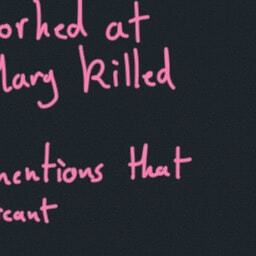 orked at
Mary killed
mentions that
cant